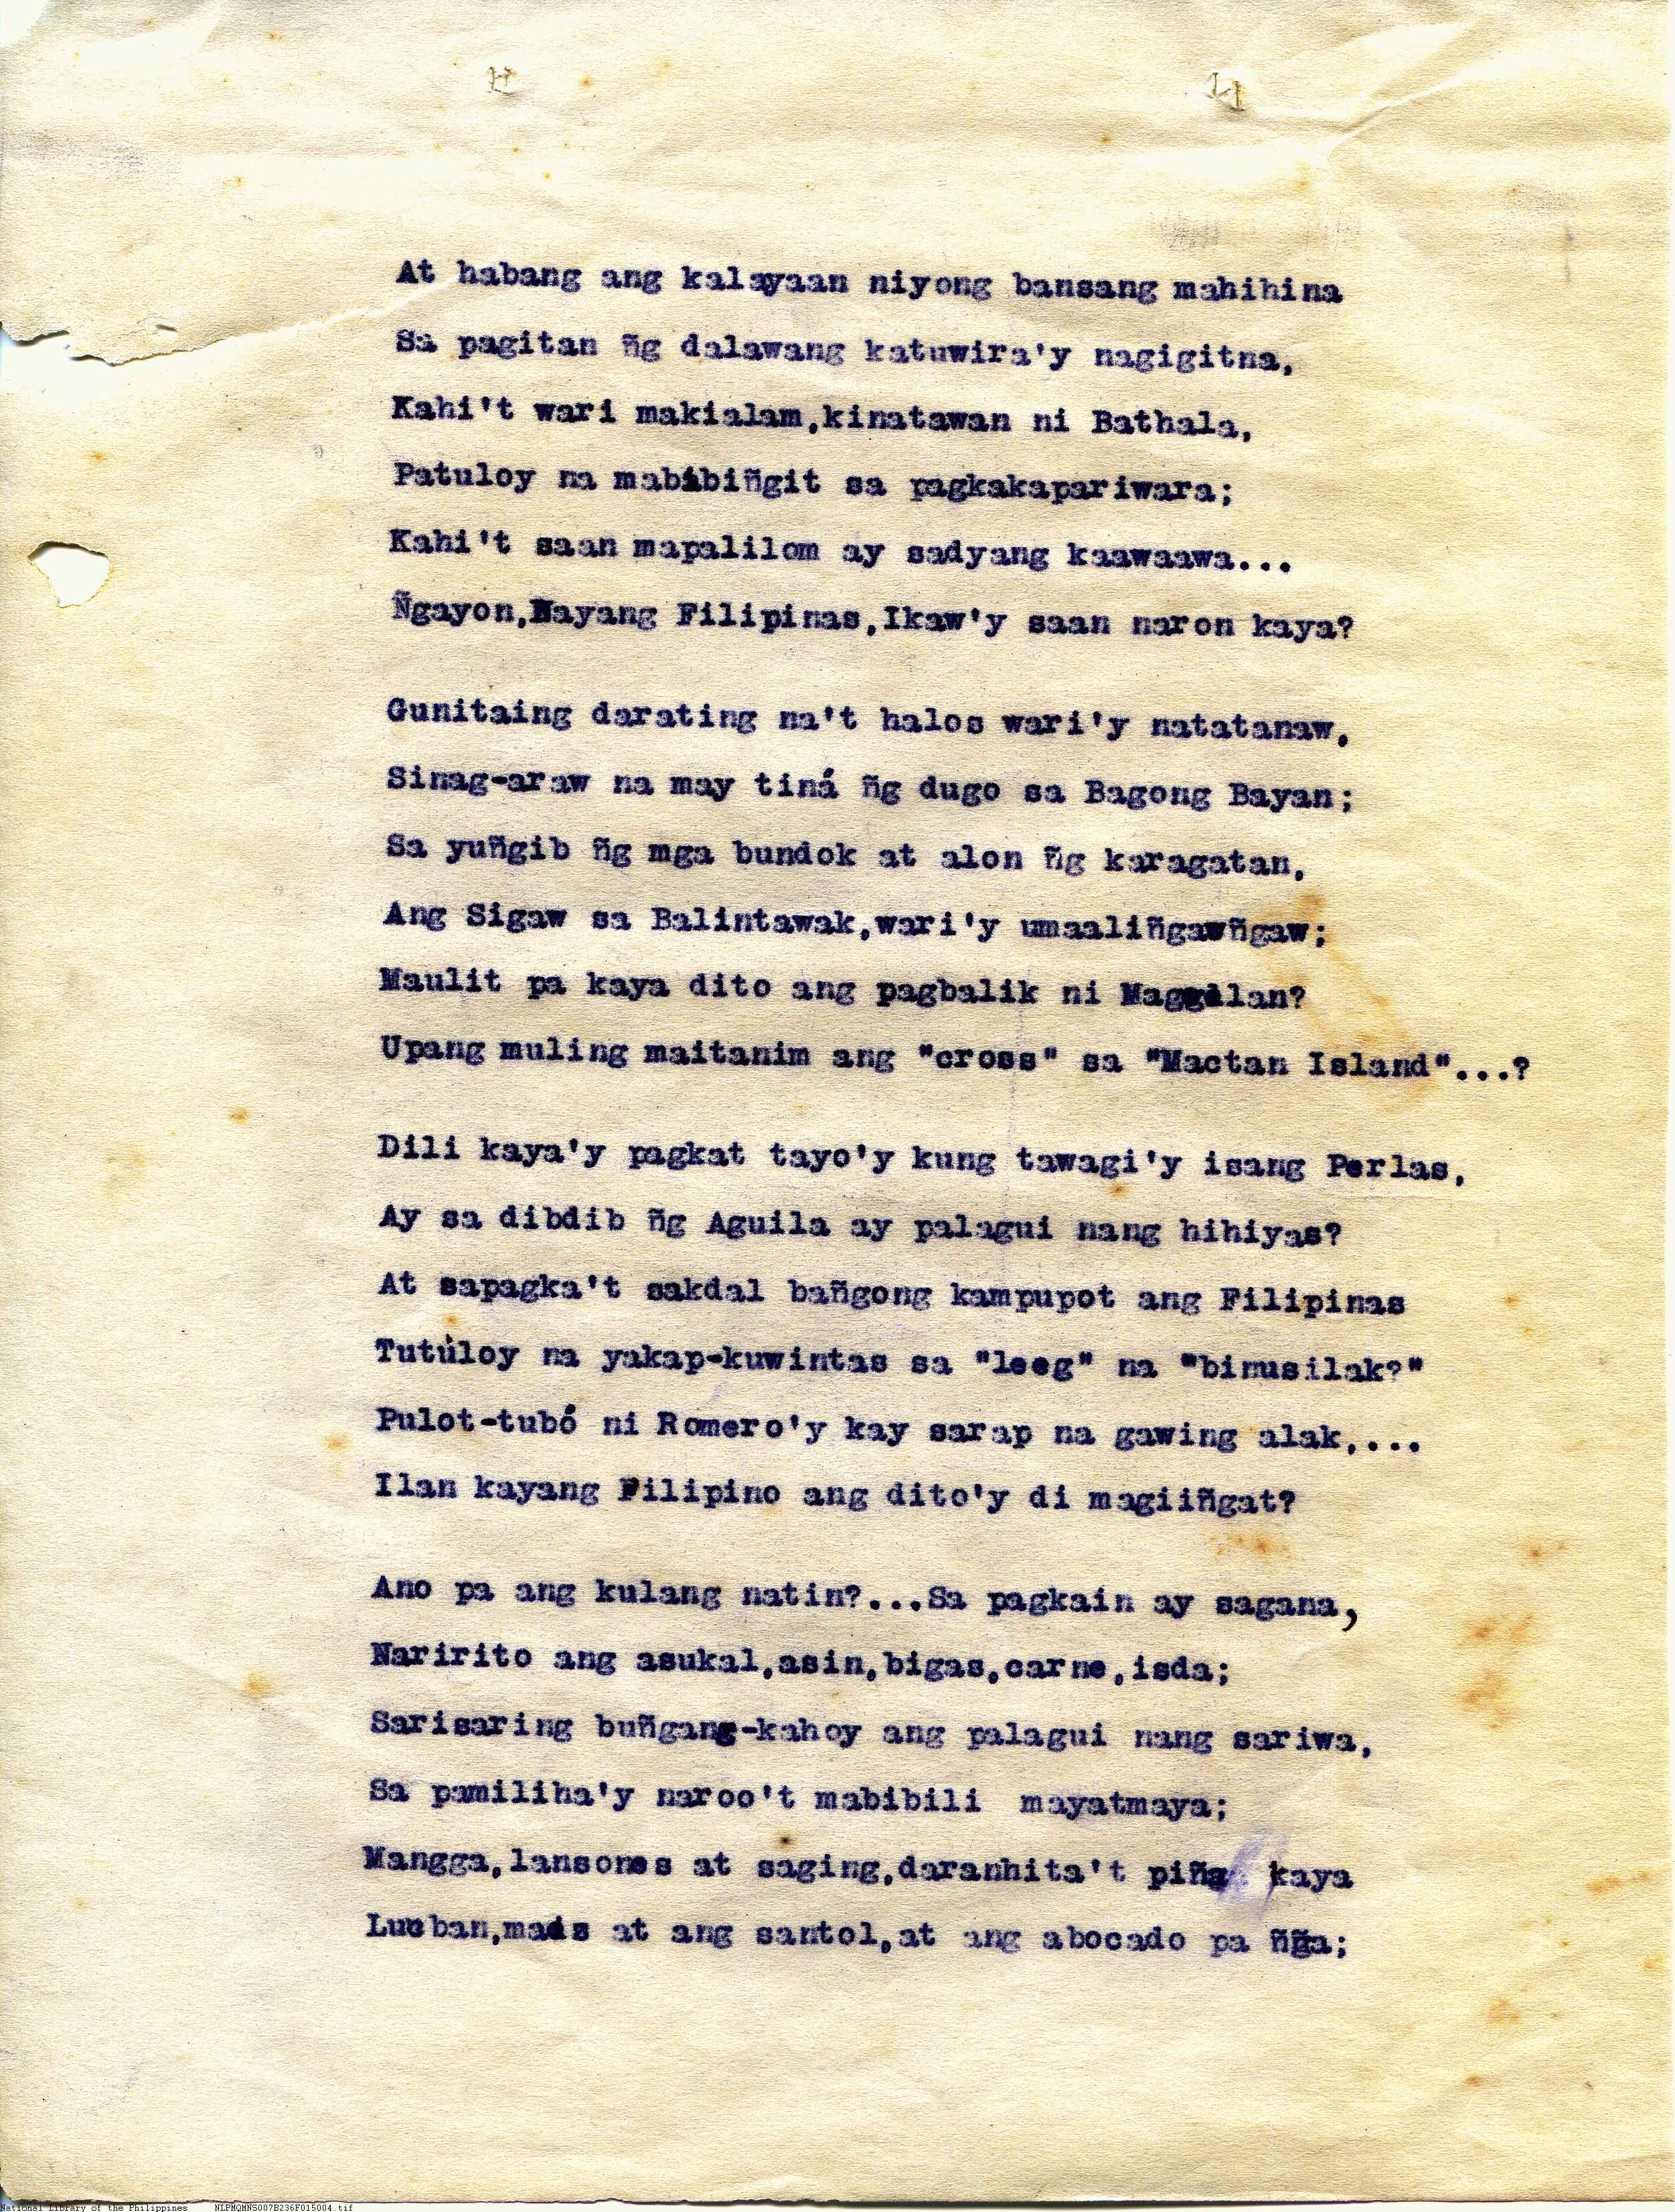 At habang ang kalayaan niyong bansang mahihina
Sa pagitan ñg dalawang katuwira'y nagigitna,
Kahi't wari makialam,kinatawan ni Bathala,
Patuloy na mabibiñgit sa pagkakapariwara;
Kahi't saan mapalilom ay sadyang kaawaawa...
Ñgayon,Nayang Filipinas,Ikaw'y saan naron kaya?
Gunitaing darating na't halos wari'y natatanaw,
Sinag-araw na may tiná ñg dugo sa Bagong Bayan;
Sa yuñgib ñg mga bundok at alon ñg karagatan,
Ang Sigaw sa Balintawak,wari'y umaaliñgawñgaw;
Maulit pa kaya dito ang pagbalik ni Magallan?
Upang muling maitanim ang "cross" sa "Mactan Island"...?
Dili kaya'y pagkat tayo'y kung tawagi'y isang Perlas,
Ay sa dibdib ñg Aguila ay palagui nang hihiyas?
At sapagka't sakdal bañgong kampupot ang Filipinas
Tutúloy na yakap-kuwintas sa "leeg" na "binusilak?"
Pulot-tubó ni Romero'y kay sarap na gawing alak,...
Ilan kayang Filipino ang dito'y di magiiñgat?
Ano pa ang kulang natin?...Sa pagkain ay sagana,
Naririto ang asukal,asin,bigas,carne,isda;
Sarisaring buñgang-kahoy ang palagui nang sariwa,
Sa pamiliha'y naroo't mabibili mayatmaya;
Mangga,lansones at saging,daranhita't piña kaya
Lucban,mais at ang santol,at ang abocado pa ñga;
National Library of the Philippines NLPMQMNS007B236F015004.tif